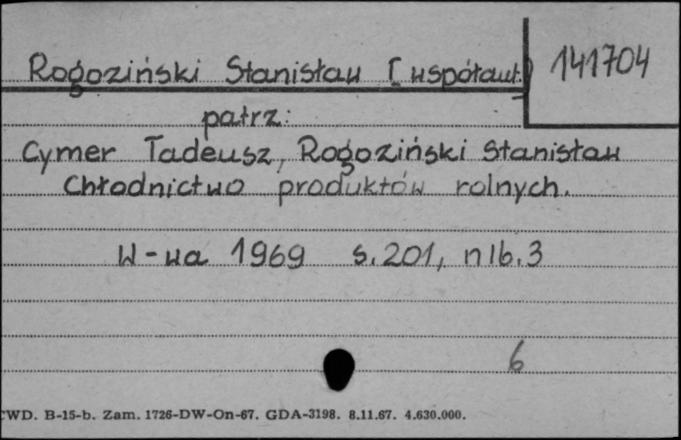 Rogoziński Stanisław [współaut.]
141704
patrz:
Cymer Tadeusz, Rogoziński Stanisław
Chłodnictwo produktów rolnych.
W-wa 1969 s. 201, nlb. 3
6
CWD. B-15-b. Zam. 1726-DW-On-67. GDA-3198. 8.11.67. 4.630.000.